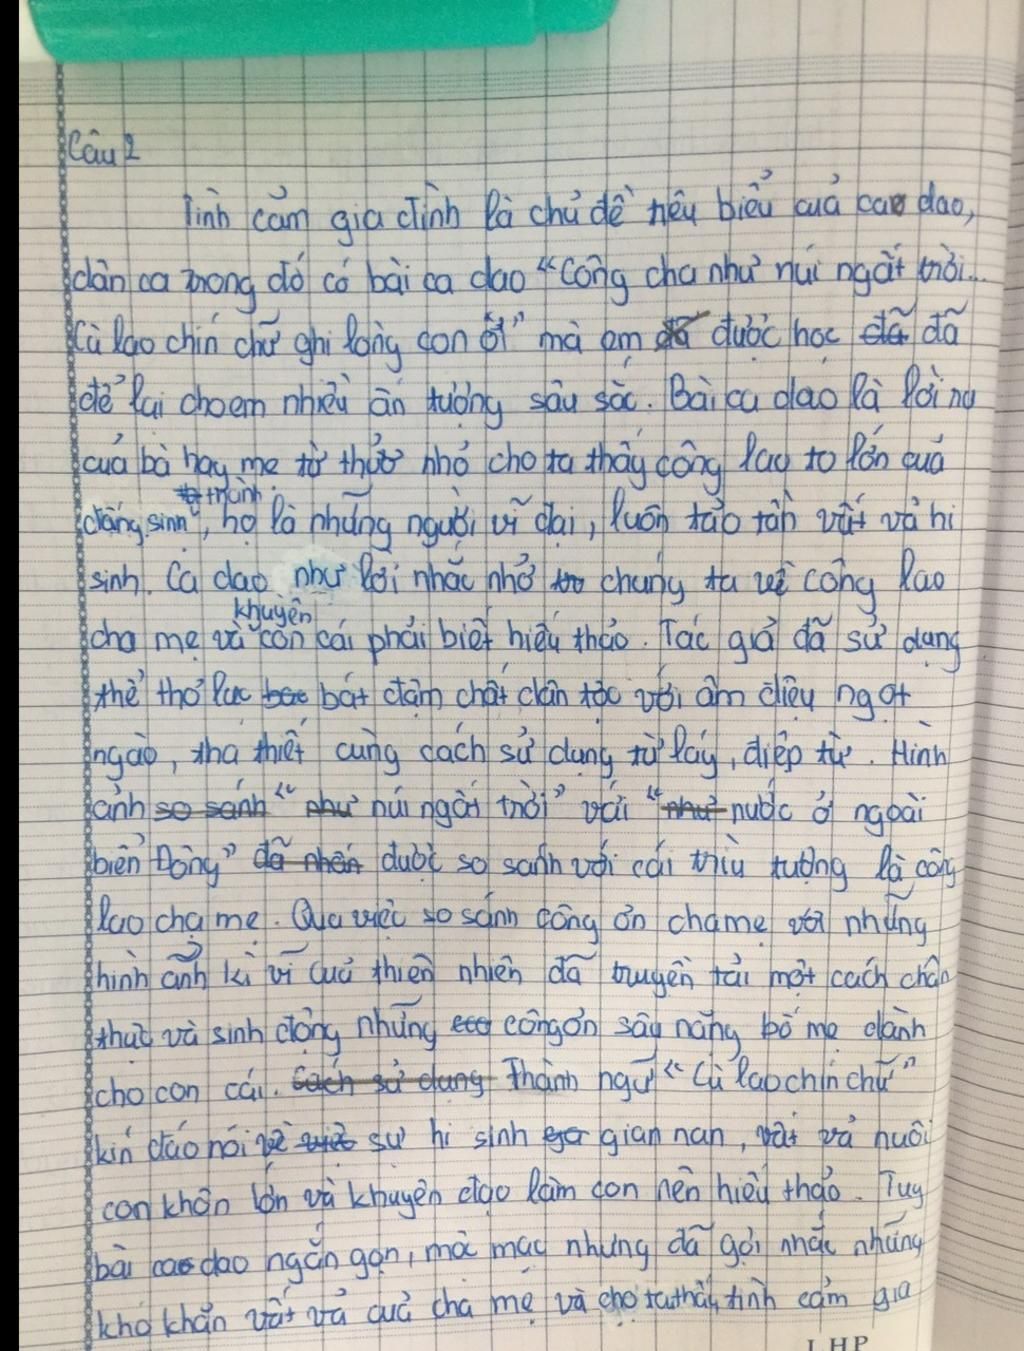 Câu 2
Tình cảm gia đình là chủ đề tiêu biểu cuả cao dao,
dân ca trong đó có bài ca dao "công cha như núi ngất trời...
Cù lao chín chữ ghi lòng con ơi" mà em đã được học đã đã
để lại cho em nhiều ấn tượng sâu sắc. Bài ca dao là lời ru
cuả bà hay mẹ từ thuở nhỏ cho ta thấy công lao to lớn cuả
đấng sinh thành, họ là những người vĩ đại, luôn tảo tần vất vả hi
sinh. Ca dao như lời nhắc nhở chúng ta về công lao
cha mẹ và khuyên con cái phải biết hiếu thảo. Tác giả đã sử dụng
thể thơ lục bát đậm chất dân tộc với âm điệu ngọt
ngào, tha thiết cùng cách sử dụng từ láy, điệp từ. Hình
ảnh so sánh "như núi ngất trời" với "như nước ở ngoài
biển Đông" đã nhấn được so sánh với cái trìu tượng là công
lao cha mẹ. Qua việc so sánh công ơn cha mẹ với những
hình ảnh kì vĩ cuả thiên nhiên đã truyền tải một cách chân
thực và sinh động những công ơn sâu nặng bố mẹ dành
cho con cái. Cách sử dụng Thành ngữ "Cù lao chín chữ"
kín đáo nói về việc sự hi sinh gian nan, vất vả nuôi
con khôn lớn và khuyên đạo làm con nên hiếu thảo. Tuy
bài cao dao ngắn gọn, mộc mạc nhưng đã gợi nhắc những
khó khăn vất vả cuả cha mẹ và cho ta thấy, tình cảm gia
LHP